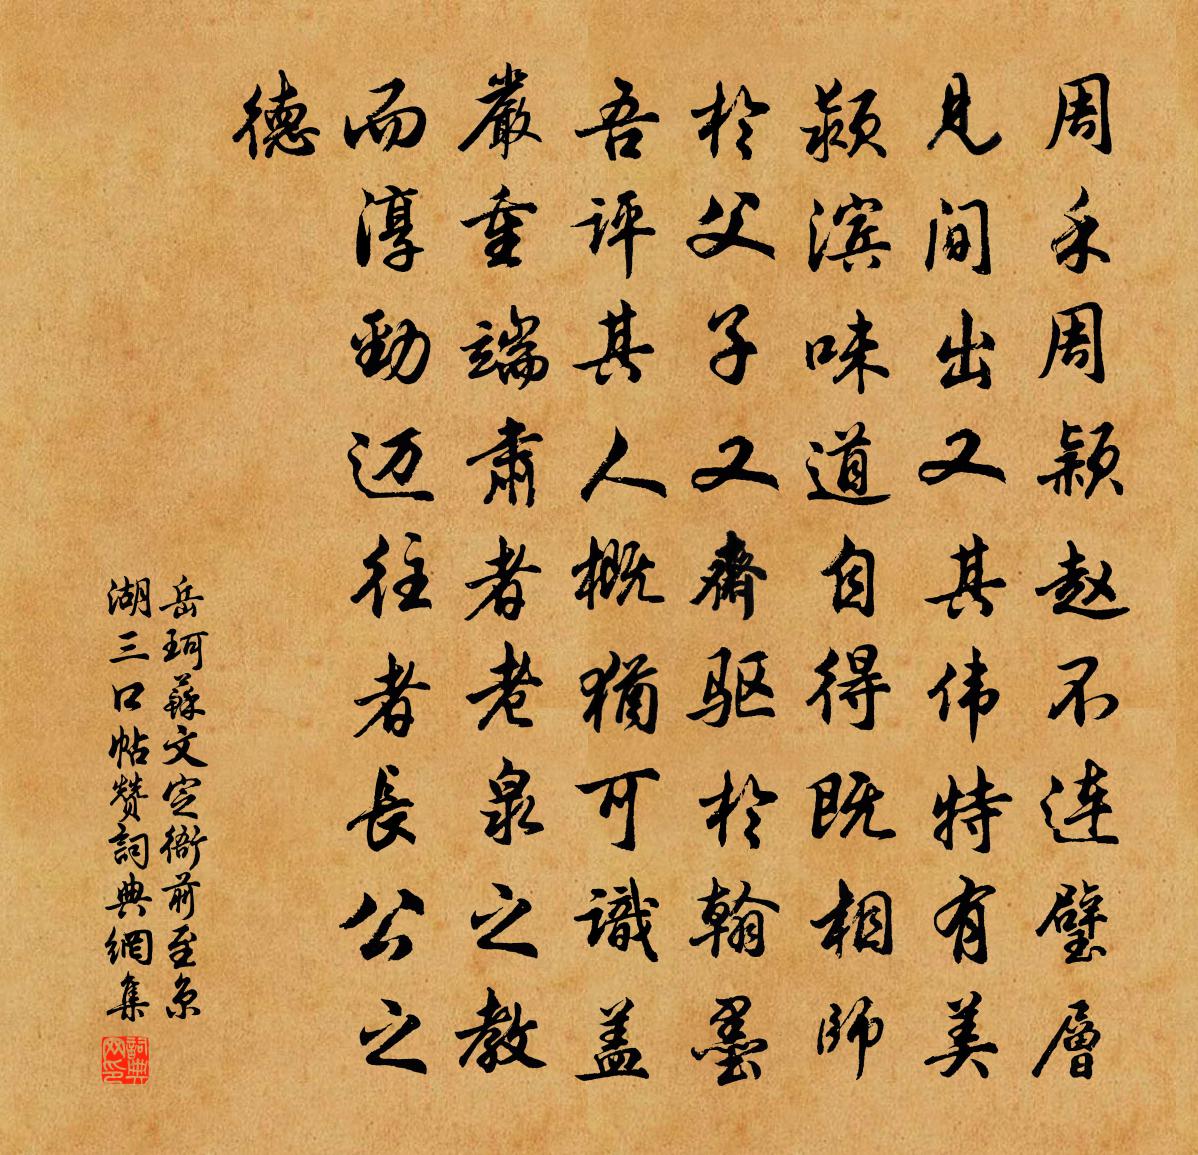 周禾周颖赵不连璧層
見间出又其伟特有美
颍滨味道自得既相師
於父子又齋驱於翰墨
吾評其人概猶可識盖
嚴重端肅者老泉之教
而淳勁迈往者長公之
德
岳珂蘇文定衙前至京
湖三口帖赞詞典網集
詞典